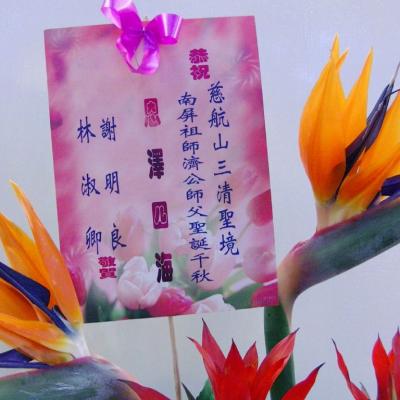 恭祝
慈航山三清聖境
南屏祖師濟公師父聖誕千秋
恩澤四海
謝明良
林淑卿
敬賀